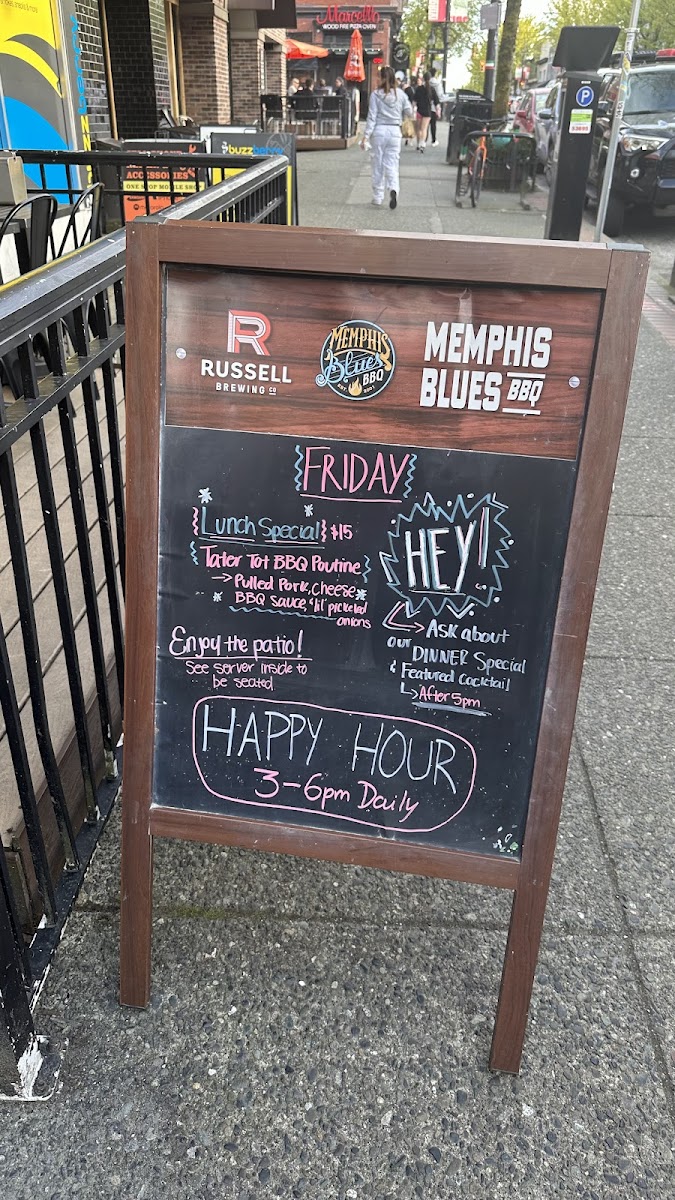 Marcello
WOOD FIRE PIZZA OVEN
P
ACCESSORIES
ONE STOP MOBILE SHOP
buzz
R
RUSSELL
BREWING CO
MEMPHIS
Blues
BBQ
MEMPHIS
BLUES BBQ
FRIDAY
Lunch Special $15
Tater Tot BBQ Poutine
→ Pulled Pork, Cheese,
BBQ Sauce, 'lil' pickeled
onions
HEY!
→ Ask about
our DINNER Special
& Featured Cocktail
↳ After 5pm
Enjoy the patio!
See server inside to
be seated
HAPPY HOUR
3-6pm Daily